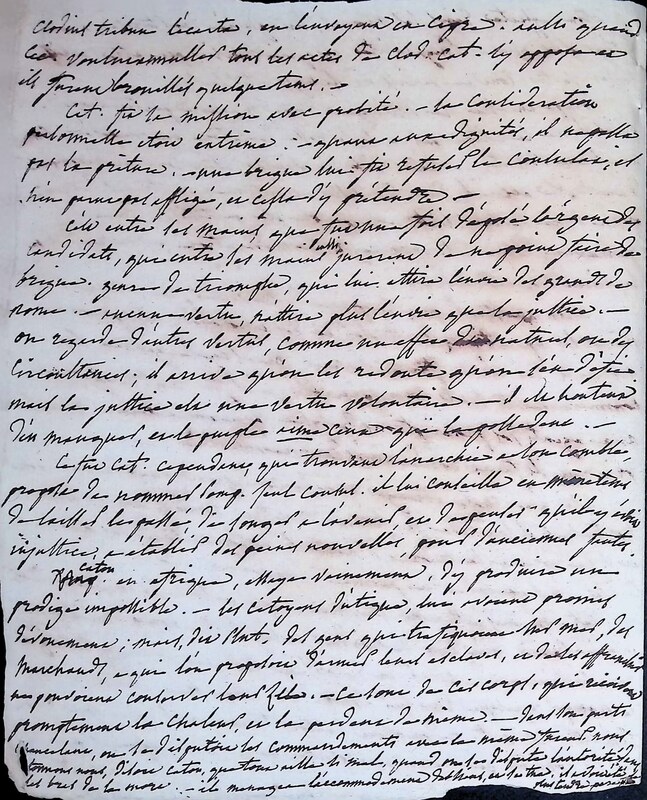 Clodius tribun l'écarta, en l'envoyant en Cypre. aussi quand
Cic. voulut annuller tous les actes de Clod. Cat. s'y opposa et
ils furent brouillés quelque tems. —
Cat. fit la mission avec probité. — la considération
personnelle étoit extrême. — quant aux dignités, il ne passa
pas la préture. — une brigue lui fit refuser le consulat, et
n'en parut pas affligé, et cessa d'y prétendre —
C'est entre ses mains que fut une fois déposé l'argent des
candidats, qui entre ses mains aussi jurerent de ne point faire de
brigue. genre de triomphe, qui lui attira l'envie des grands de
rome. — aucune vertu, n'attire plus l'envie que la justice. —
on regarde d'autres vertus, comme un effet du naturel, ou des
circonstances; il arrive qu'on les redoute qu'on s'en défie
mais la justice est une vertu volontaire. — il est honteux
d'en manquer, et le peuple aime ceux qui la possedent. —
Ce fut Cat. cependant, qui trouvant l'anarchie à son comble
proposa de nommer Pomp. seul consul. il lui conseilla en même tems
de laisser le passé, de songer à l'avenir, et de penser qu'il y a
injustice, à établir des peines nouvelles, pour d'anciennes fautes.
caton en afrique, essaya vainement, d'y produire un
prodige impossible. — les citoyens d'utique, lui avoient promis
dévouement; mais, dit Plut. des gens qui trafiquoient sur mer, des
marchands, à qui l'on proposoit d'armer leurs esclaves, et de les affranchir
ne pouvoient conserver leur zèle. — ce sont de ces corps, qui reçoivent
promptement la chaleur, et la perdent de même. — dans son parti
on se disputoit les commandements avec la même fureur nous
étonnons nous, disoit caton, que tout aille si mal, quand on se dispute l'autorité dans
les bras de la mort. — il menagea l'accommodement des siens, et se tua.